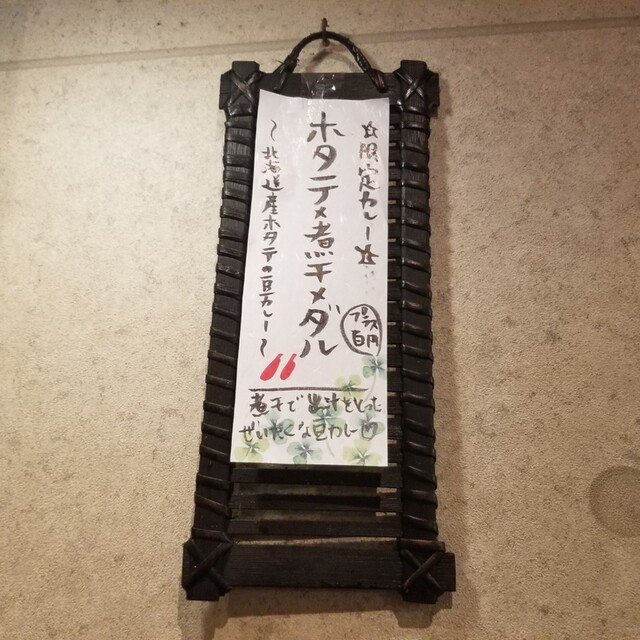 ☆限定カレー☆
ホタテ×煮干×ダル
〜北海道産ホタテの豆カレー〜
煮干で出汁をとった
ぜいたくな豆カレー